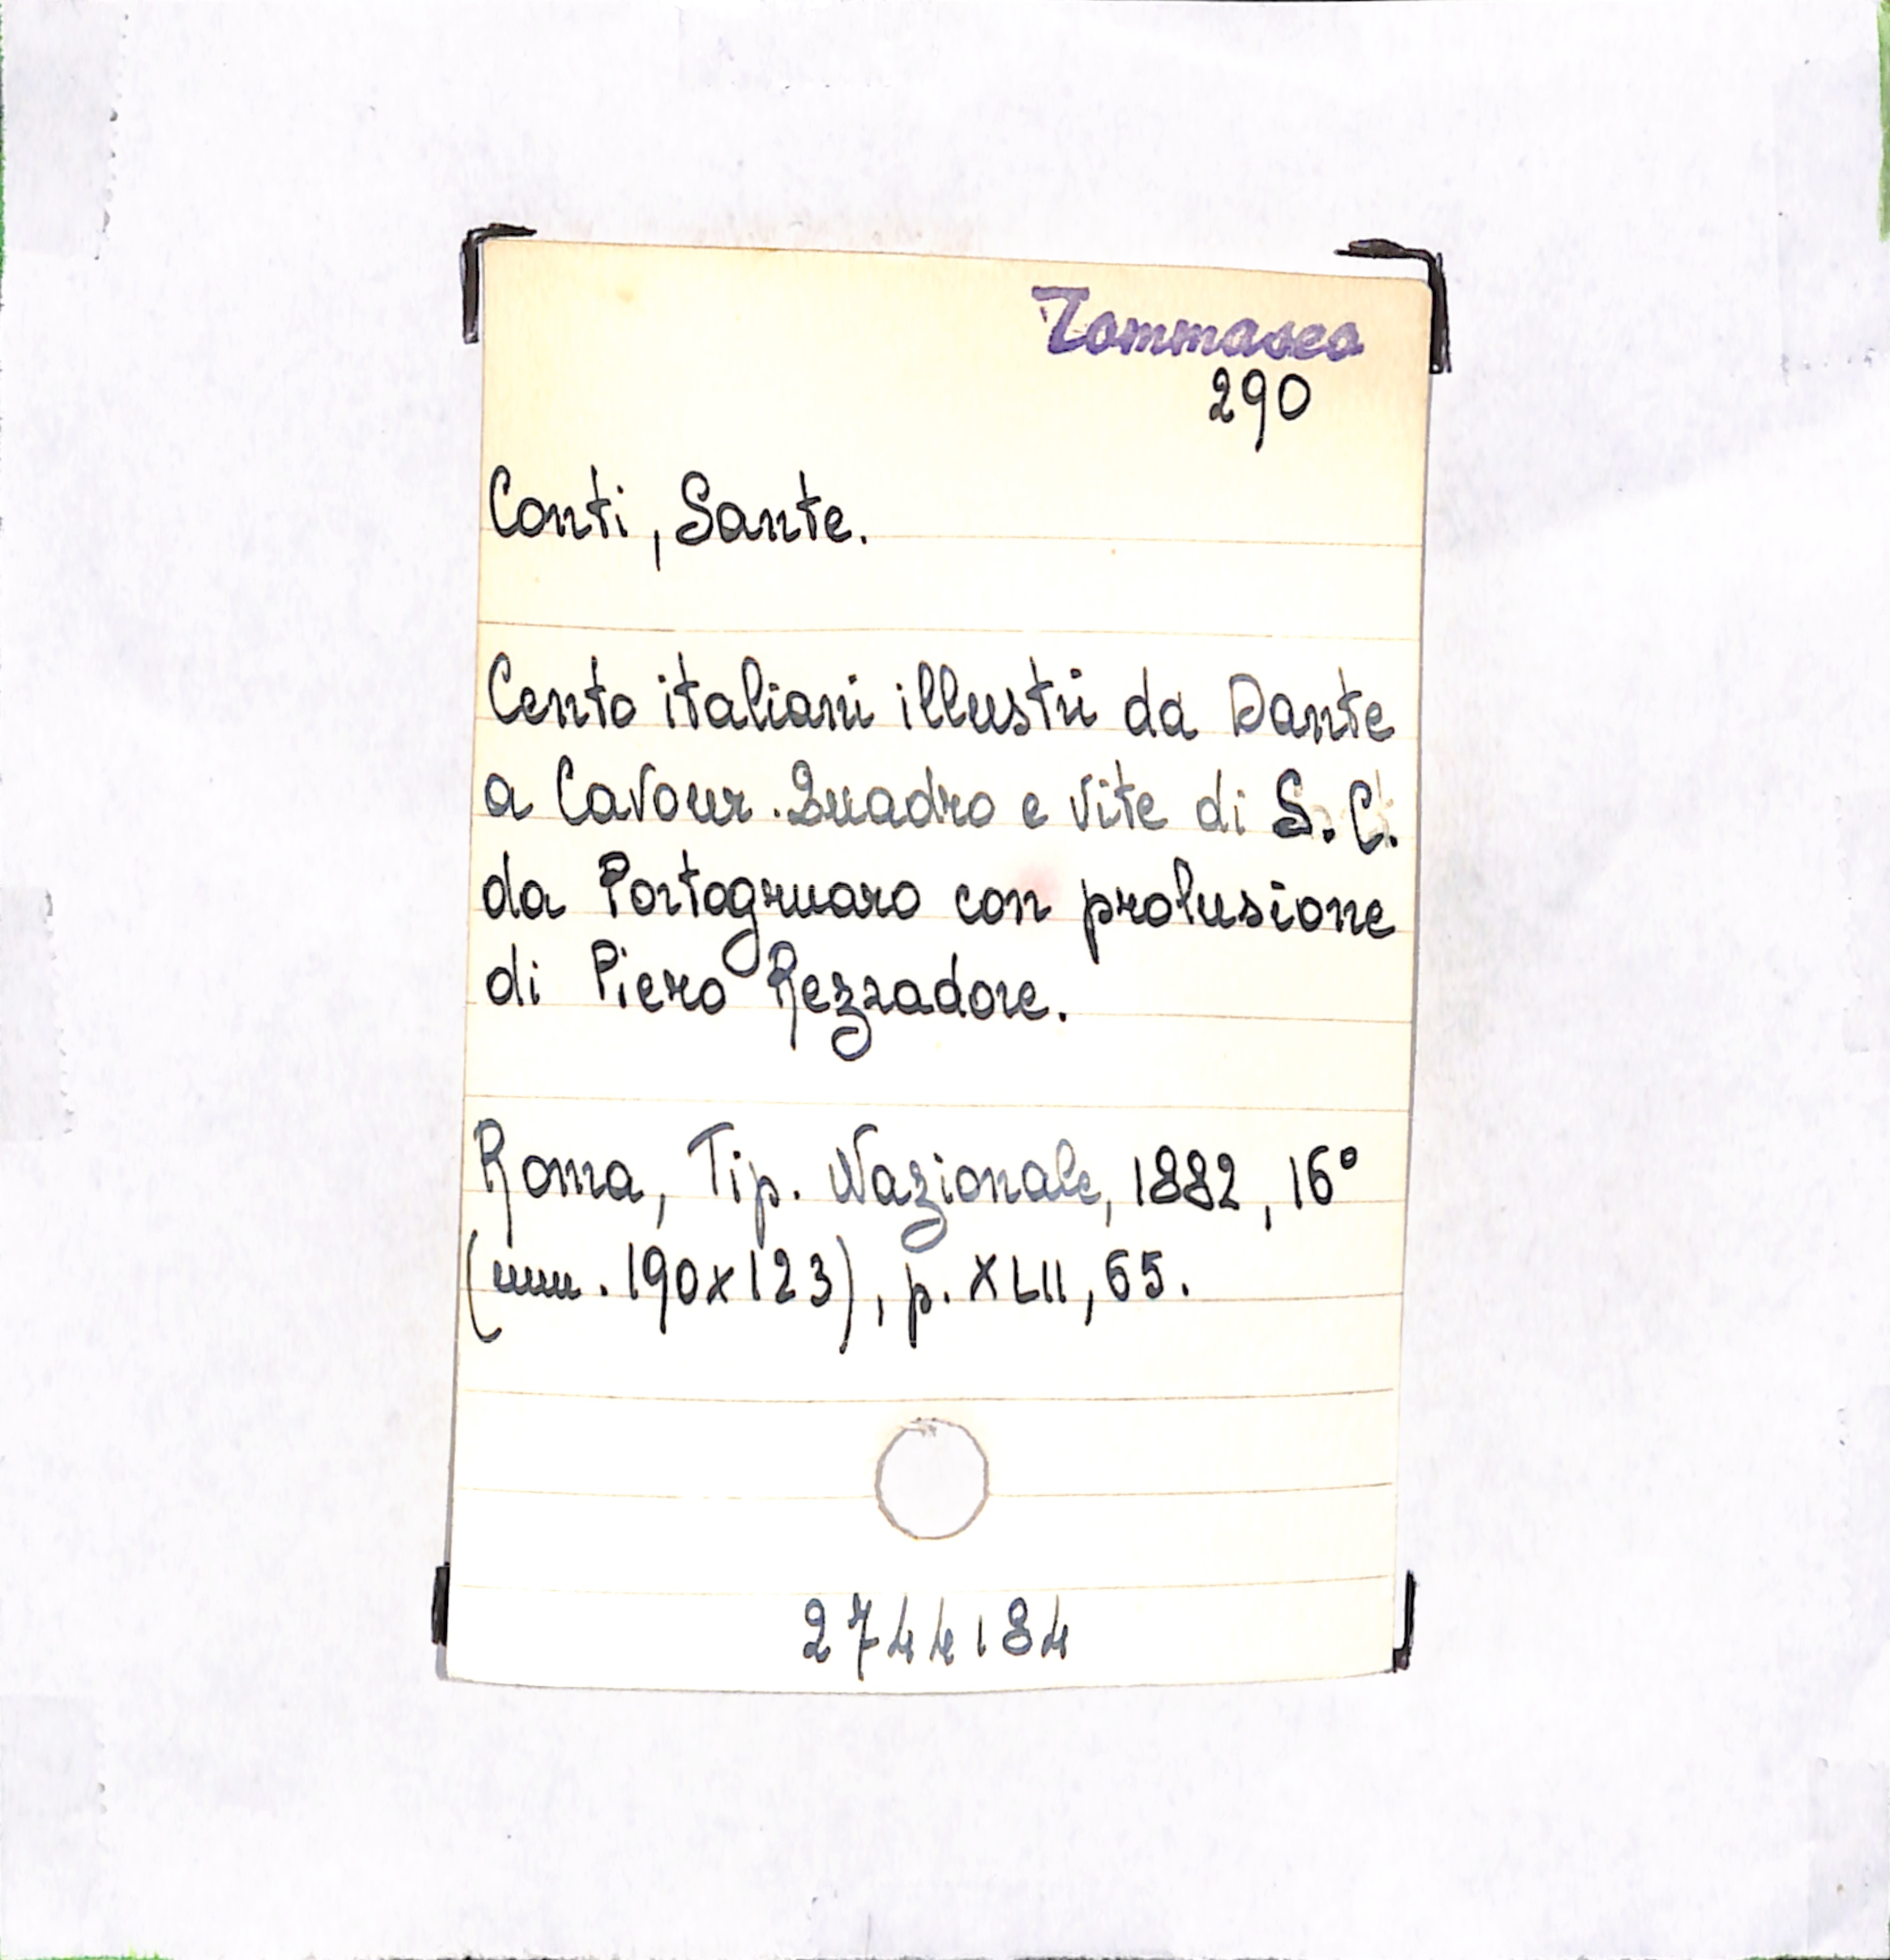 Tommaseo
290
Conti, Sante.
Cento italiani illustri da Dante
a Cavour. Quadro e vite di S. C.
da Portogruaro con prolusione
di Piero Rezzadore.
Roma, Tip. Nazionale, 1882, 16°
(mm. 190x123), p. XLII, 65.
2744184